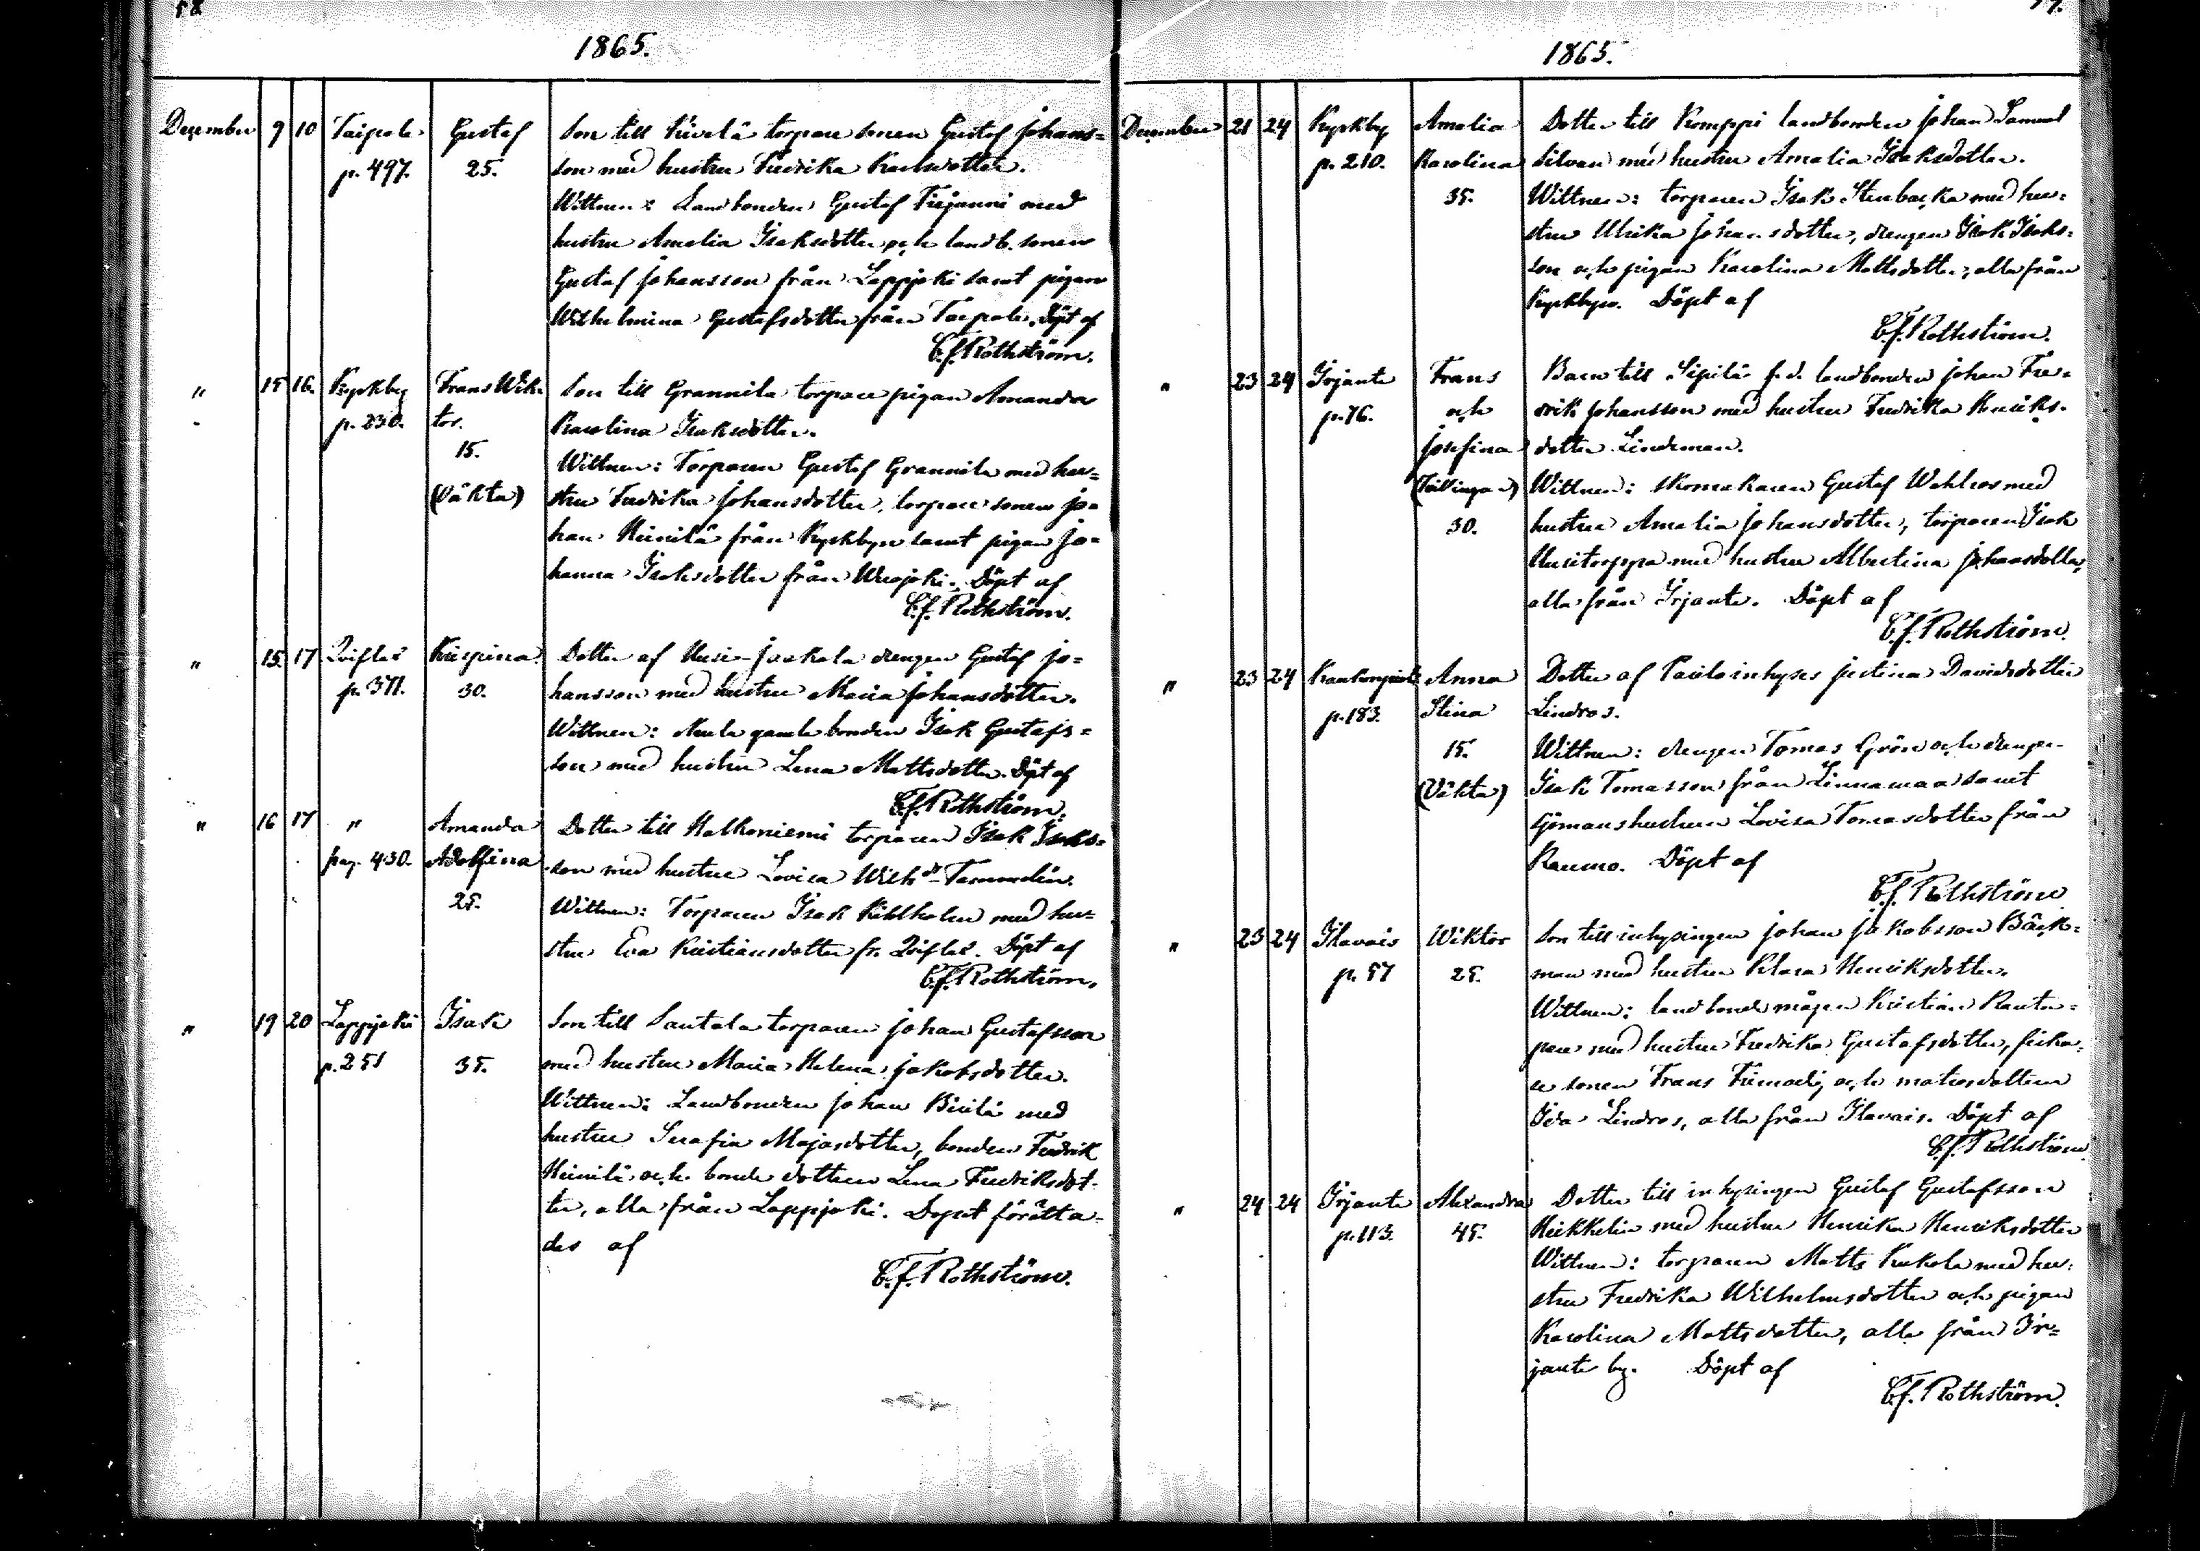 58
1865.
December 9 10 Taipale Gustaf Son till Kivelä torpare sonen Gustaf Johans=
p. 497. 25. son med hustru Fredrika Karlsdotter.
Wittnen: Landbonden Gustaf Pirjanni med
hustru Amalia Isaksdotter och landb. sonen
Gustaf Johansson från Lappjoki samt pigan
Wilhelmina Gustafsdotter från Taipale. Döpt af
C.J. Rothström.
" 15 16. Kyrkby Frans Wik- Son till Grannila torpare pigan Amanda
p. 230. tor. Karolina Isaksdotter.
15. Wittnen: Torparen Gustaf Grannila med hu=
(Oäkta) stru Fredrika Johansdotter, torpare sonen Jo=
han Heinilä från Kyrkbyn samt pigan Jo=
hanna Isaksdotter från Wuojoki. Döpt af
C.J. Rothström.
" 15. 17 Krispina Dotter af Uusi-Jaakola drengen Gustaf Jo=
p. 371. 30. hansson med hustru Maria Johansdotter.
Wittnen: gamle bonden Isak Gustafs=
son med hustru Lena Mattsdotter. Döpt af
C.J. Rothström.
" 16 17 " Amanda Dotter till Halkoniemi torparen Isak Isaks=
pag. 430. Adolfina son med hustru Lovisa Wilh.dr Tammelin.
25. Wittnen: Torparen Isak Kihlholm med hu=
stru Eva Kristiansdotter fr. Döpt af
C.J. Rothström.
" 19 20 Lappjoki Isak Son till Santala torparen Johan Gustafsson
p. 251 35. med hustru Maria Helena Jakobsdotter.
Wittnen: Landbonden Johan med
hustru Serafia Majasdotter, bonden Fredrik
Heinilä och bonde dottren Lena Fredriksdot-
ter, alla från Lappjoki. Dopet förätta-
des af
C.J. Rothström.
1865.
December 21 24 Kyrkby Amalia Dotter till Komppi landbonden Johan Samuel
p. 210. Karolina Silvan med hustru Amalia Isaksdotter.
35. Wittnen: torparen Isak Stenbacka med hu=
stru Ulrika Johansdotter, drengen Isak Isaks=
son och pigan Karolina Mattsdotter, alla från
Kyrkbyn. Döpt af
C.J. Rothström.
" 23 24 Irjante Frans Barn till Sipilä f.d. landbonden Johan Fre=
p. 76. och drik Johansson med hustru Fredrika Henriks=
Josefina dotter Lindeman.
(Tvillingar) Wittnen: skomakaren Gustaf Wahlros med
30. hustru Amalia Johansdotter, torparen Isak
Uusitorppa med hustru Albertina Johansdotter,
alla från Irjante. Döpt af
C.J. Rothström.
" 23 24 Anna Dotter af Pavilo inhyses Justina Davidsdotter
p. 183. Stina Lindros.
15. Wittnen: drengen Tomas Grön och drengen
(Oäkta) Isak Tomasson från Linnamaa samt
sjömanshustrun Lovisa Tomasdotter från
Raumo. Döpt af
C.J. Rothström
" 23 24 Ilavais Wiktor Son till inhysingen Johan Jakobsson Bäck=
p. 57 25. man med hustru Klara Henriksdotter.
Wittnen: landbonde mågen Kristian Rantan=
pää med hustru Fredrika Gustafsdotter, fiska=
re sonen Frans och matrosdottren
Ida Lindros, alla från Ilavais. Döpt af
C.J. Rothström
" 24 24 Irjante Alexandra Dotter till inhysingen Gustaf Gustafsson
p. 113. 45. Heikkelin med hustru Henrika Henriksdotter
Wittnen: torparen Matts Kukola med hu=
stru Fredrika Wilhelmsdotter och pigan
Karolina Mattsdotter, alla från Ir=
jante by. Döpt af
C.J. Rothström.